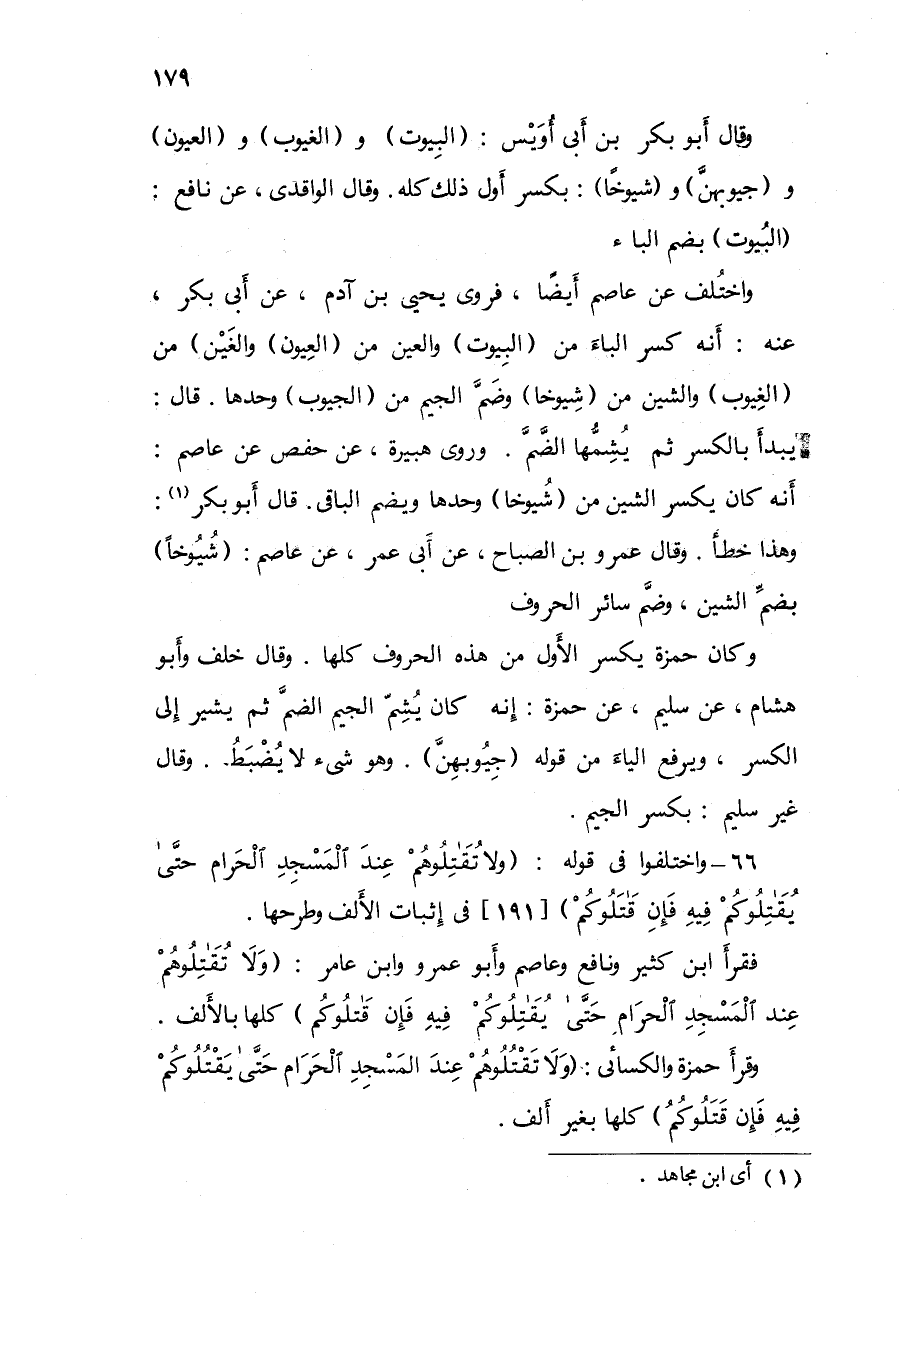 ١٧٩
وقال أبو بكر بن أَبى أُوَيْس : (البِيوت) و (الغيوب) و (العيون)
و (جيوبهنَّ) و (شيوخًا) : بكسر أَول ذلك كله. وقال الواقدى ، عن نافع :
(البُيوت) بضم الباء
واختُلف عن عاصم أَيضًا ، فروى يحيى بن آدم ، عن أَبى بكر ،
عنه : أَنه كسر الباءَ من (البِيوت) والعين من (العِيون) والغَيْن) من
(الغِيوب) والشين من (شِيوخا) وضَمَّ الجيم من (الجيوب) وحدها . قال :
يبدأَ بالكسر ثم يُشِمُّها الضَّمَّ . وروى هبيرة ، عن حفص عن عاصم :
أَنه كان يكسر الشين من (شُيوخا) وحدها ويضم الباقى. قال أَبو بكر (١) :
وهذا خطأَ . وقال عمرو بن الصباح ، عن أَبى عمر ، عن عاصم : (شُيُوخاً)
بضمِّ الشين ، وضَّم سائر الحروف
وكان حمزة يكسر الأَول من هذه الحروف كلها . وقال خلف وأَبو
هشام ، عن سليم ، عن حمزة : إِنه كان يُشِمّ الجيم الضمَّ ثم يشير إِلى
الكسر ، ويرفع الياءَ من قوله (جِيُوبهِنَّ) . وهو شىء لا يُضْبَطُ . وقال
غير سليم : بكسر الجيم .
٦٦ ـ واختلفوا فى قوله : (ولا تُقَٰتِلُوهُمْ عِندَ ٱلْمَسْجِدِ ٱلْحَرام حتَّىٰ
يُقَٰتِلُوكُمْ فِيهِ فَإِن قَٰتَلُوكُمْ) [١٩١] فى إثبات الأَلف وطرحها .
فقرأَ ابن كثير ونافع وعاصم وأَبو عمرو وابن عامر : (وَلَا تُقَٰتِلُوهُمْ
عِند ٱلْمَسْجدِ ٱلْحرَامِ حَتَّىٰ يُقَٰتِلُوكُمْ فِيهِ فَإِن قَٰتلُوكُم ) كلها بالأَلف .
وقرأَ حمزة والكسائى : (وَلَا تَقْتُلُوهُمْ عِندَ المَسْجدِ ٱلْحَرَام حَتَّىٰ يَقْتُلُوكُمْ
فِيهِ فَإِن قَتَلُوكُمُ) كلها بغير أَلف .
(١) أى ابن مجاهد .